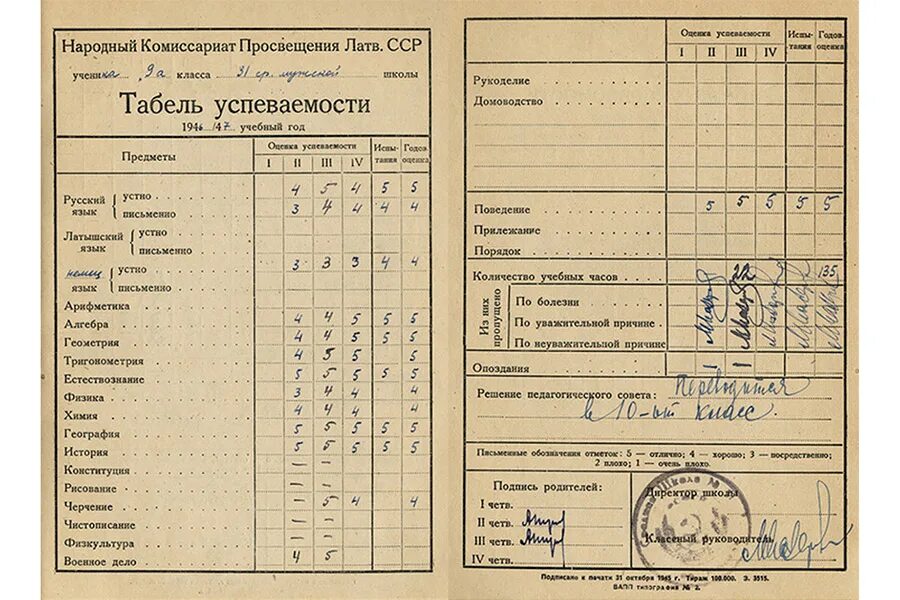 Народный Комиссариат Просвещения Латв. ССР
ученика 9а класса 31 ср. мужской школы
Табель успеваемости
1946/47 учебный год
Предметы Оценка успеваемости Испытания Годов. оценка
I II III IV
Русский язык устно 4 5 4 5 5
письменно 3 4 4 4 4
Латышский язык устно
письменно
немец. язык устно 3 3 3 4 4
письменно
Арифметика
Алгебра 4 4 5 5 5
Геометрия 4 4 5 5 5
Тригонометрия 4 5 5 5
Естествознание 5 5 5 5 5
Физика 3 4 4 4
Химия 4 4 4 4
География 5 5 5 5 5
История 5 5 5 5 5
Конституция — —
Рисование — —
Черчение — 5 4 4
Чистописание — —
Физкультура — —
Военное дело 4 5
Оценка успеваемости Испытания Годов. оценка
I II III IV
Рукоделие
Домоводство
Поведение 5 5 5 5 5
Прилежание
Порядок
Количество учебных часов 22 135
Из них пропущено
По болезни
По уважительной причине
По неуважительной причине
Опоздания 1 1
Решение педагогического совета: Переводится
в 10-ый класс.
Письменные обозначения отметок: 5 — отлично; 4 — хорошо; 3 — посредственно;
2 плохо; 1 — очень плохо.
Подпись родителей:
I четв.
II четв.
III четв.
IV четв.
Директор школы
Классный руководитель
Подписано к печати 31 октября 1945 г. Тираж 100.000. З. 3515.
ВАПП типография № 2.